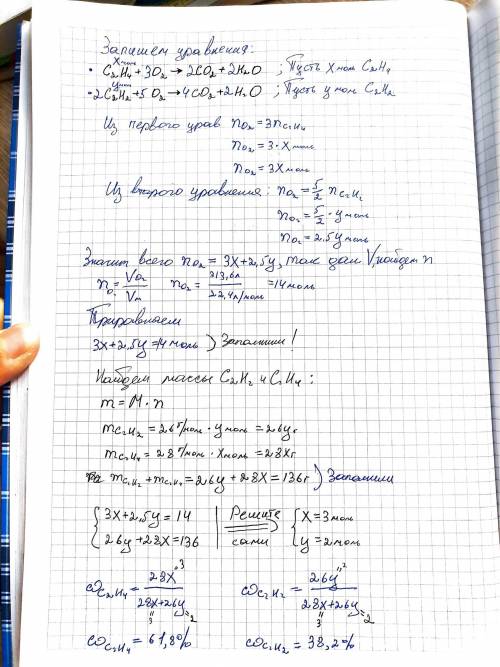 Запишем уравнения:
x моль
• C₂H₄ + 3O₂ → 2CO₂ + 2H₂O ; Пусть x моль C₂H₄
y моль
• 2C₂H₂ + 5O₂ → 4CO₂ + 2H₂O ; Пусть y моль C₂H₂
Из первого урав n O₂ = 3n C₂H₄
n O₂ = 3 · x моль
n O₂ = 3x моль
Из второго уравнения: n O₂ = 5/2 n C₂H₂
n O₂ = 5/2 · y моль
n O₂ = 2.5y моль
Значит всего n O₂ = 3x + 2,5y, так дан V, найдем n
n O₂ = V O₂ / Vm n O₂ = 313,6л / 22,4 л/моль = 14 моль
Приравняем
3x + 2,5y = 14 моль ) Запомним!
Найдем массы C₂H₂ и C₂H₄:
m = M · n
m C₂H₂ = 26 г/моль · y моль = 26y г
m C₂H₄ = 28 г/моль · x моль = 28x г
m C₂H₂ + m C₂H₄ = 26y + 28x = 136г ) Запомним
{ 3x + 2,5y = 14 | Решите { x = 3 моль
{ 26y + 28x = 136 | сами { y = 2 моль
ω C₂H₄ = 28x" 3 / 28x + 26y " 3 " = 2 ω C₂H₂ = 26y" 2 / 28x + 26y " 3 " = 2
ω C₂H₄ = 61,8% ω C₂H₂ = 38,2%